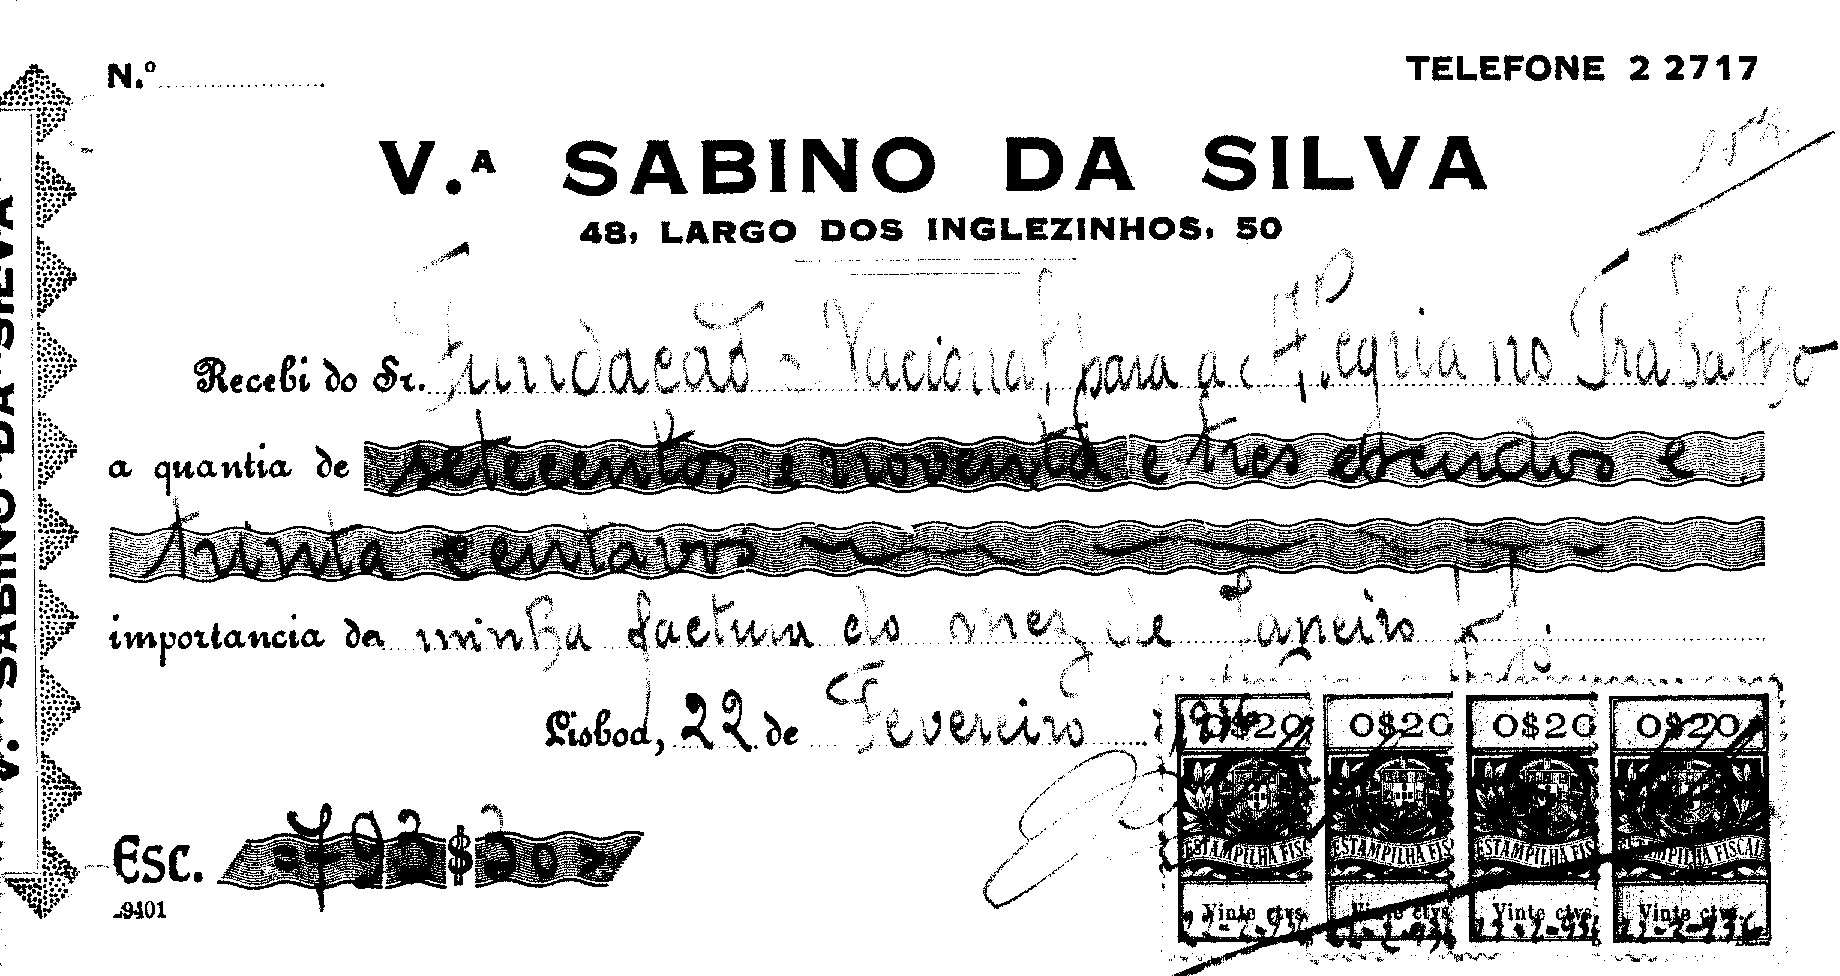 N.º
TELEFONE 2 2717
V.ᴬ SABINO DA SILVA
48, LARGO DOS INGLEZINHOS, 50
Recebi do Sr. Fundação Nacional para a Alegria no Trabalho
a quantia de setecentos e noventa e tres escudos e
trinta centavos
importancia da minha factura do mez de Janeiro
Lisboa, 22 de Fevereiro 1936
O$20 O$20 O$20 O$20
ESTAMPILHA FISCAL ESTAMPILHA FISCAL ESTAMPILHA FISCAL ESTAMPILHA FISCAL
Esc. 793$30
Vinte ctvs. Vinte ctvs. Vinte ctvs. Vinte ctvs.
22-2-936 22-2-936 22-2-936 22-2-936
9401
V.ᴬ SABINO DA SILVA